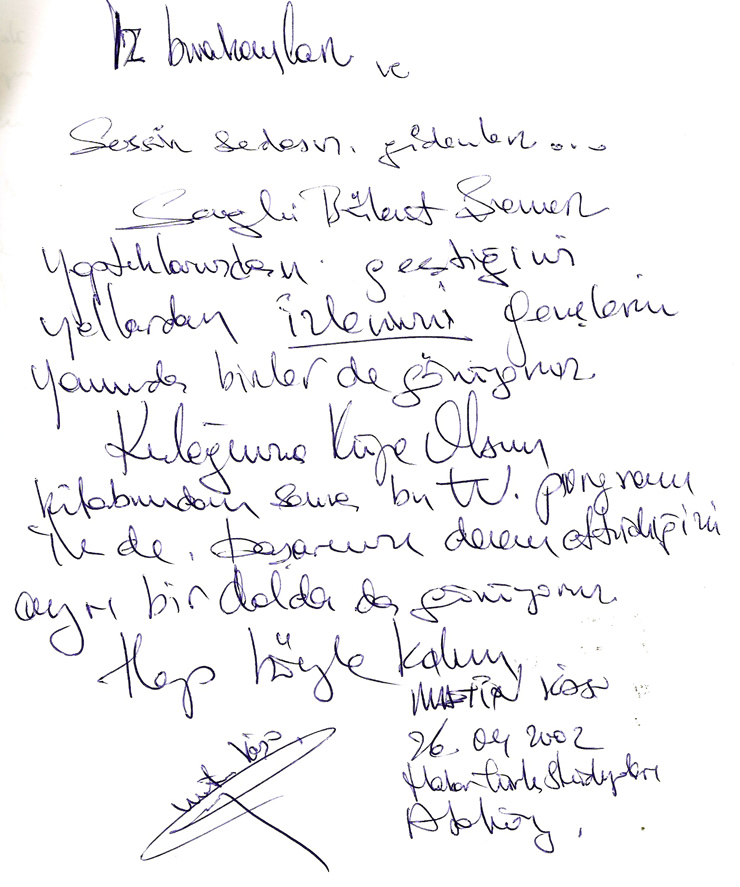 İz bırakanlar ve
Sessiz sedasız gidenler...
Sevgili Bülent Şenver
yaptıklarınızdan geçtiğiniz
yollardan izlerinizi gençlerin
yanında bizler de görüyoruz
Kulağınıza Küpe Olsun
kitabınızdan sonra bu TV. programı
ile de, başarınızı devam ettirdiğinizi
ayrı bir dalda da görüyoruz
Hep böyle kalın
METİN
26.04 2002
Habertürk Stüdyoları
Ataköy,